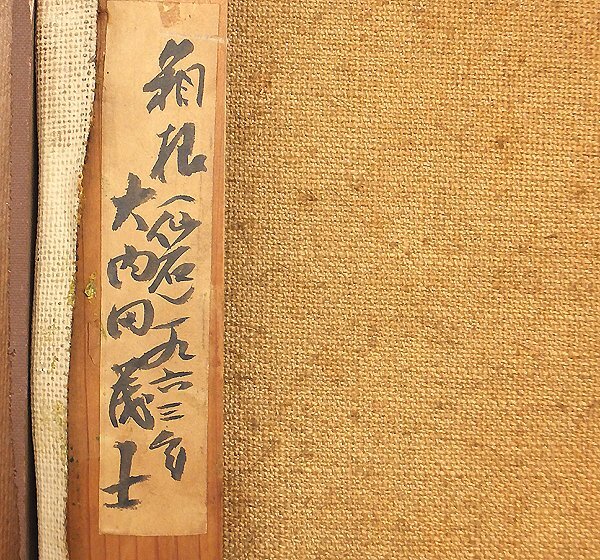 箱根
仙石 一九六三年
大内田茂士